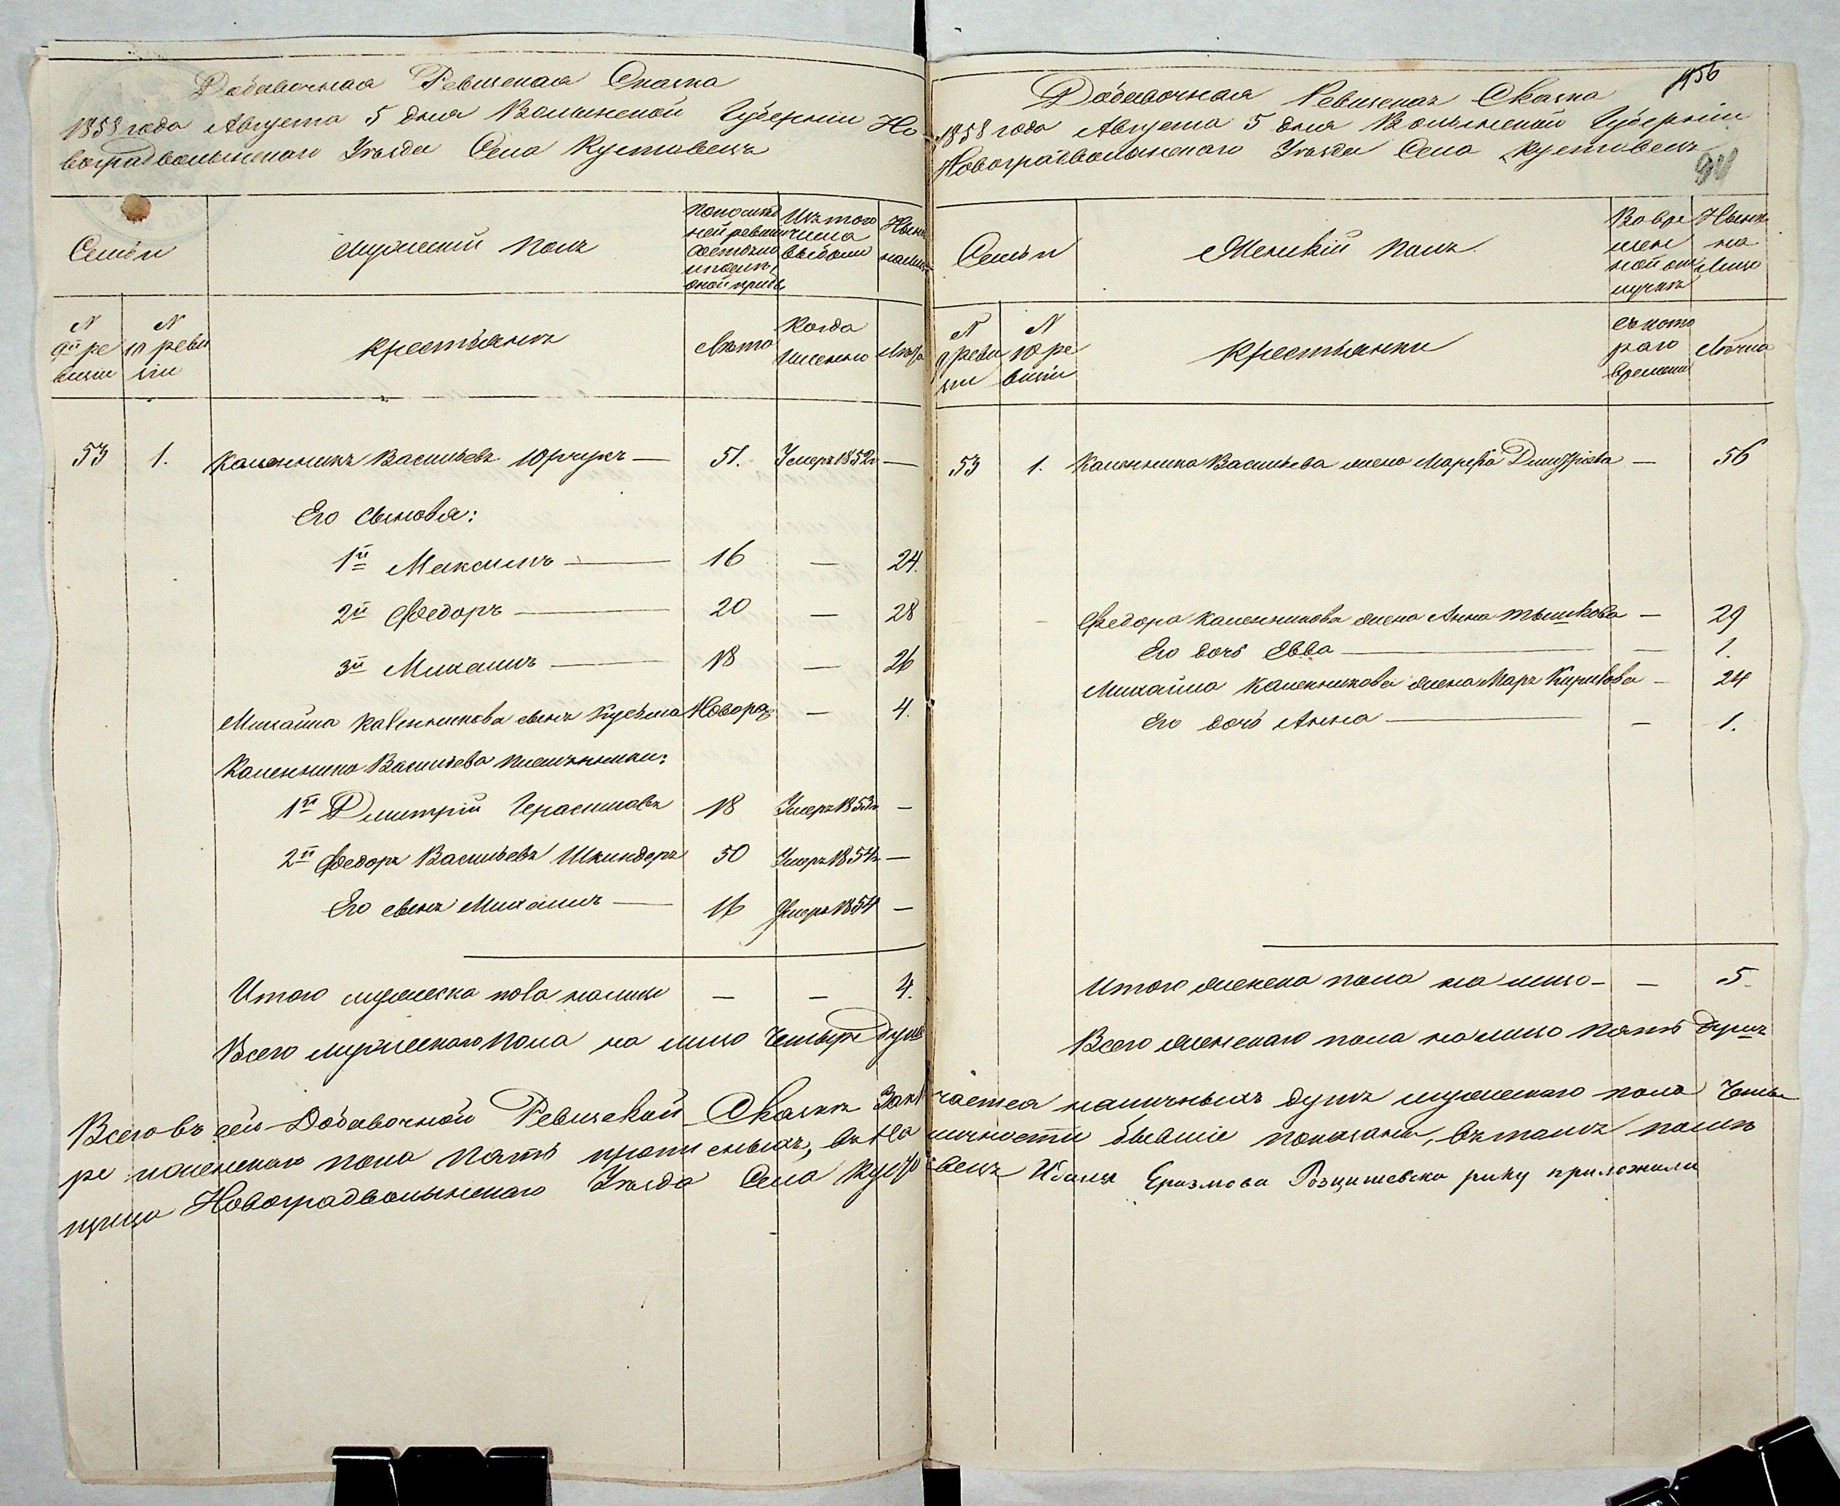 Добавочная Ревизская Сказка
1858 года Августа 5 дня Волынской Губернии Но-
воградволынскаго Уѣзда Села Кустовецъ
Семьи
Мужескій полъ
По послѣд
ней ревизіи
состояло
и послѣ
оной приб.
Изъ того
числа
выбыло
Нынѣ
налицо
N
9й ре
визіи
N
10 реви
зіи
Крестьянъ
Лѣта
Когда
именно
Лѣта
53 1. Каленникъ Васильевъ Юрчукъ — 51. Умеръ 1852г —
Его сыновья:
1й Максимъ — 16 — 24.
2й Федоръ — 20 — 28
3й Михаилъ — 18 — 26
Михайла Каленникова сынъ Кузьма Новорож — 4.
Каленника Васильева племянники:
1й Дмитрій Герасимовъ 18 Умеръ 1853г —
2й Федоръ Васильевъ Шкиндеръ 50 Умеръ 1854г —
Его сынъ Михаилъ — 16 Умеръ 1854 —
Итого мужеска пола налицо — — 4.
Всего мужескаго пола на лицо Четыре души
Добавочная Ревизская Сказка
456
1858 года Августа 5 дня Волынской Губерніи
Новоградволынскаго Уѣзда Села Кустовецъ
Семьи
Женскій полъ.
Во вре
мен
ной от
лучкѣ
Нынѣ
на
лицо
N
9 реви
зіи
N
10 ре
визіи
Крестьянки
съ кото
раго
времени
Лѣта
53 1. Каленника Васильева жена Марфа Дмитріева — 56
Федора Каленникова жена Анна Тышкова — 29
Его дочь Евва — — 1.
Михайла Каленникова жена Мар. Кирикова — 24
Его дочь Анна — — 1.
Итого женска пола на лицо — — 5.
Всего женскаго пола налицо пять душъ
Всего въ сей Добавочной Ревизской Сказкѣ Заключается наличныхъ душъ мужескаго пола Четы-
ре и женскаго пола пять прописныхъ, въ Наличности бывшіе показаны, въ томъ помѣ
щица Новоградволынскаго Уѣзда Села Кустовецъ Ераэмова руку приложили